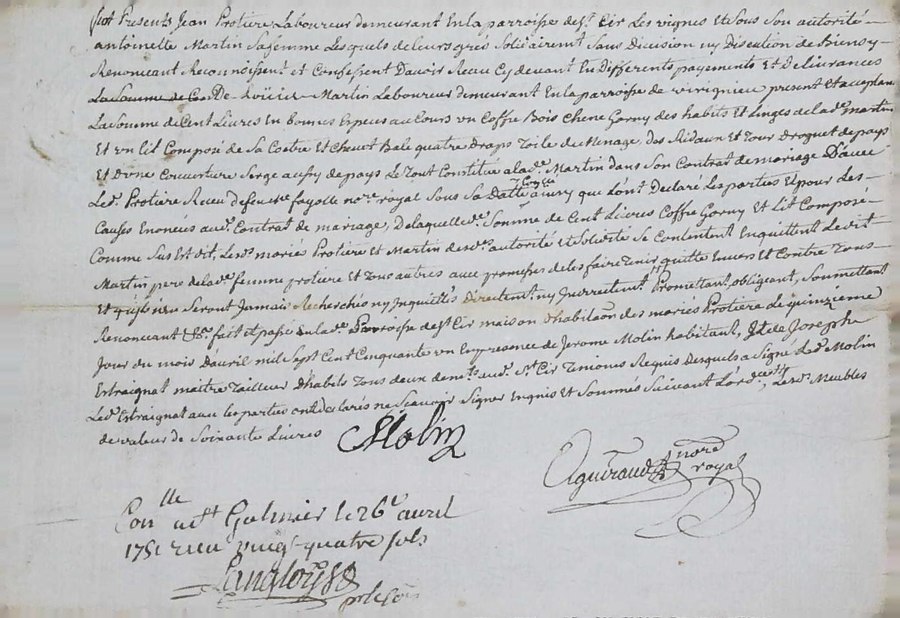 fut Presents Jean Protiere Laboureur demeurant En la parroisse de st Cir Les vignes Et Sous Son autorité
antoinette Martin Sa femme Lesquels de leurs grés Solidairemt Sans Division ny Discution de biens y
Renoncant Reconnissent et Confessent Davoir Receu Cy devant En Differents payements Et Delivrances
La Somme de Cen De Martin Laboureur demeurant En la parroisse de virignieu present Et acceptant
La Somme de Cent Livres En bonnes Especes au Cours un Coffre Bois Chene Garny des habits Et Linges de lade Martin
Et un lit Composé de Sa Coetre Et Chevet Bale quatre Draps Toile du Menage, Dos Ridaux Et Tour Droguet de pays
Et D'une Couverture Serge aussy de pays Le Tout Constitué a lade Martin dans Son Contrat de mariage D'avec
Led. Protiere Receu defunt me fayolle nore royal Sous Sa Datte a iceluy que lont Declaré Les parties Et pour des
Causes Enoncés aud. Contrat de mariage, De laquelle de Somme de Cent Livres Coffre Garny Et Lit Composé
Comme Sus Est dit, Lesd. mariés Protiere Et Martin desd. autorité Et Solidité Se Contentent En quittent Le dit
Martin pere de lade femme protiere Et Tous autres aux promesses de les faire Tenir quitte Envers Et Contre Tous
Et quils nen Seront Jamais Recherchés ny Inquiettés Directemt ny Indirectemt Promettant, obligeant, Soumettant
Renoncant &c. fait Et passé En lade Parroisse de st Cir maison D'habitaon des mariés Protiere Le quinzieme
Jour du mois D'avril mil Sept Cent Cinquante un En presence de Jerome Molin habitant, Et de Joseph
Estraignat maitre Tailleur D'habits Tous deux demts aud. St. Cir Temoins Requis Desquels a Signé Led. Molin
Led. Estraignat aux les parties ont declarés ne Scavoir Signer Enquis Et Sommés Suivant Lordce, Lesd. Meubles
de valeur de Soixante Livres
Molin
Aguiraud nore royal
Conlle a st Galmier le 26e avril
1751 receu vingt-quatre sols
Langlois